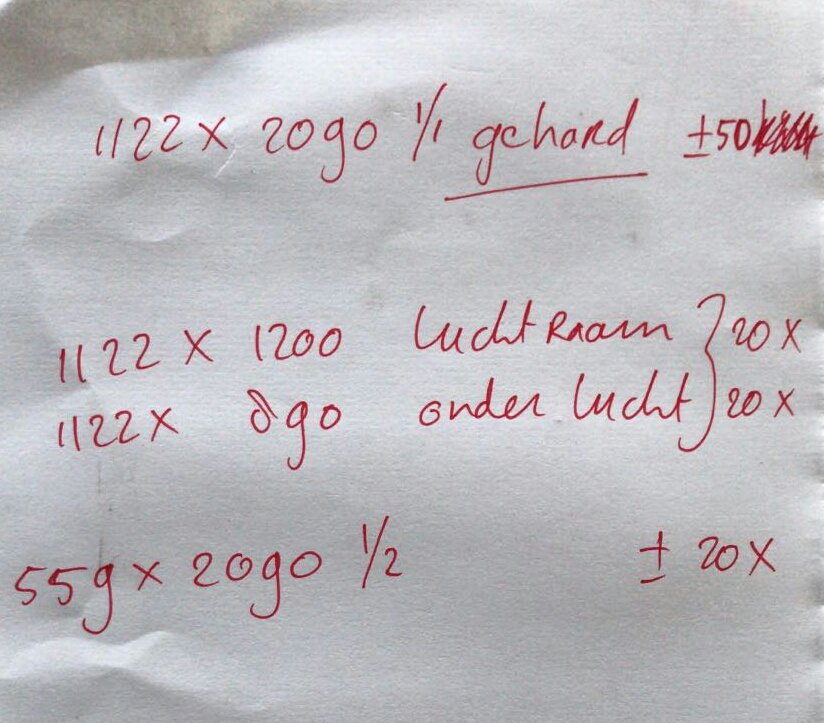 1122 x 2090 1/1 gehard ±50
1122 x 1200 luchtraam } 20 x
1122 x 890 onder lucht } 20 x
559 x 2090 1/2 ± 20 x